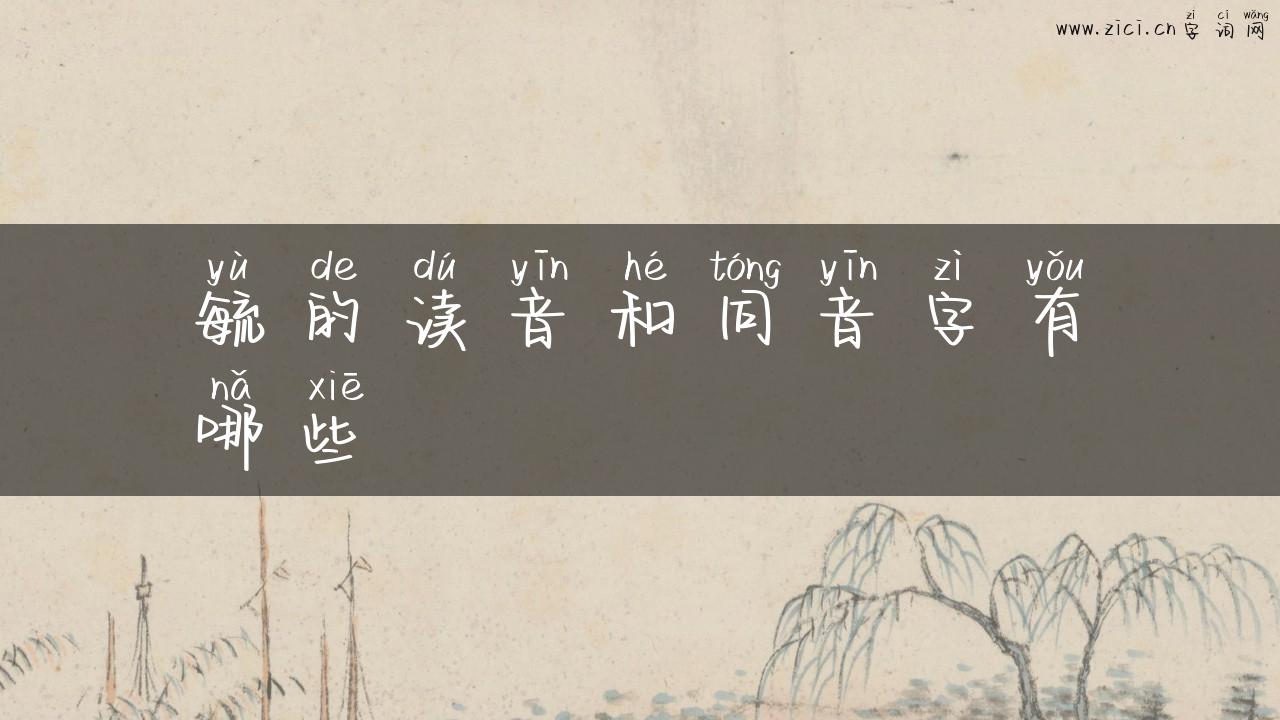 zì cí wǎng
www.zici.cn 字词网
yù de dú yīn hé tóng yīn zì yǒu
毓的读音和同音字有
nǎ xiē
哪些